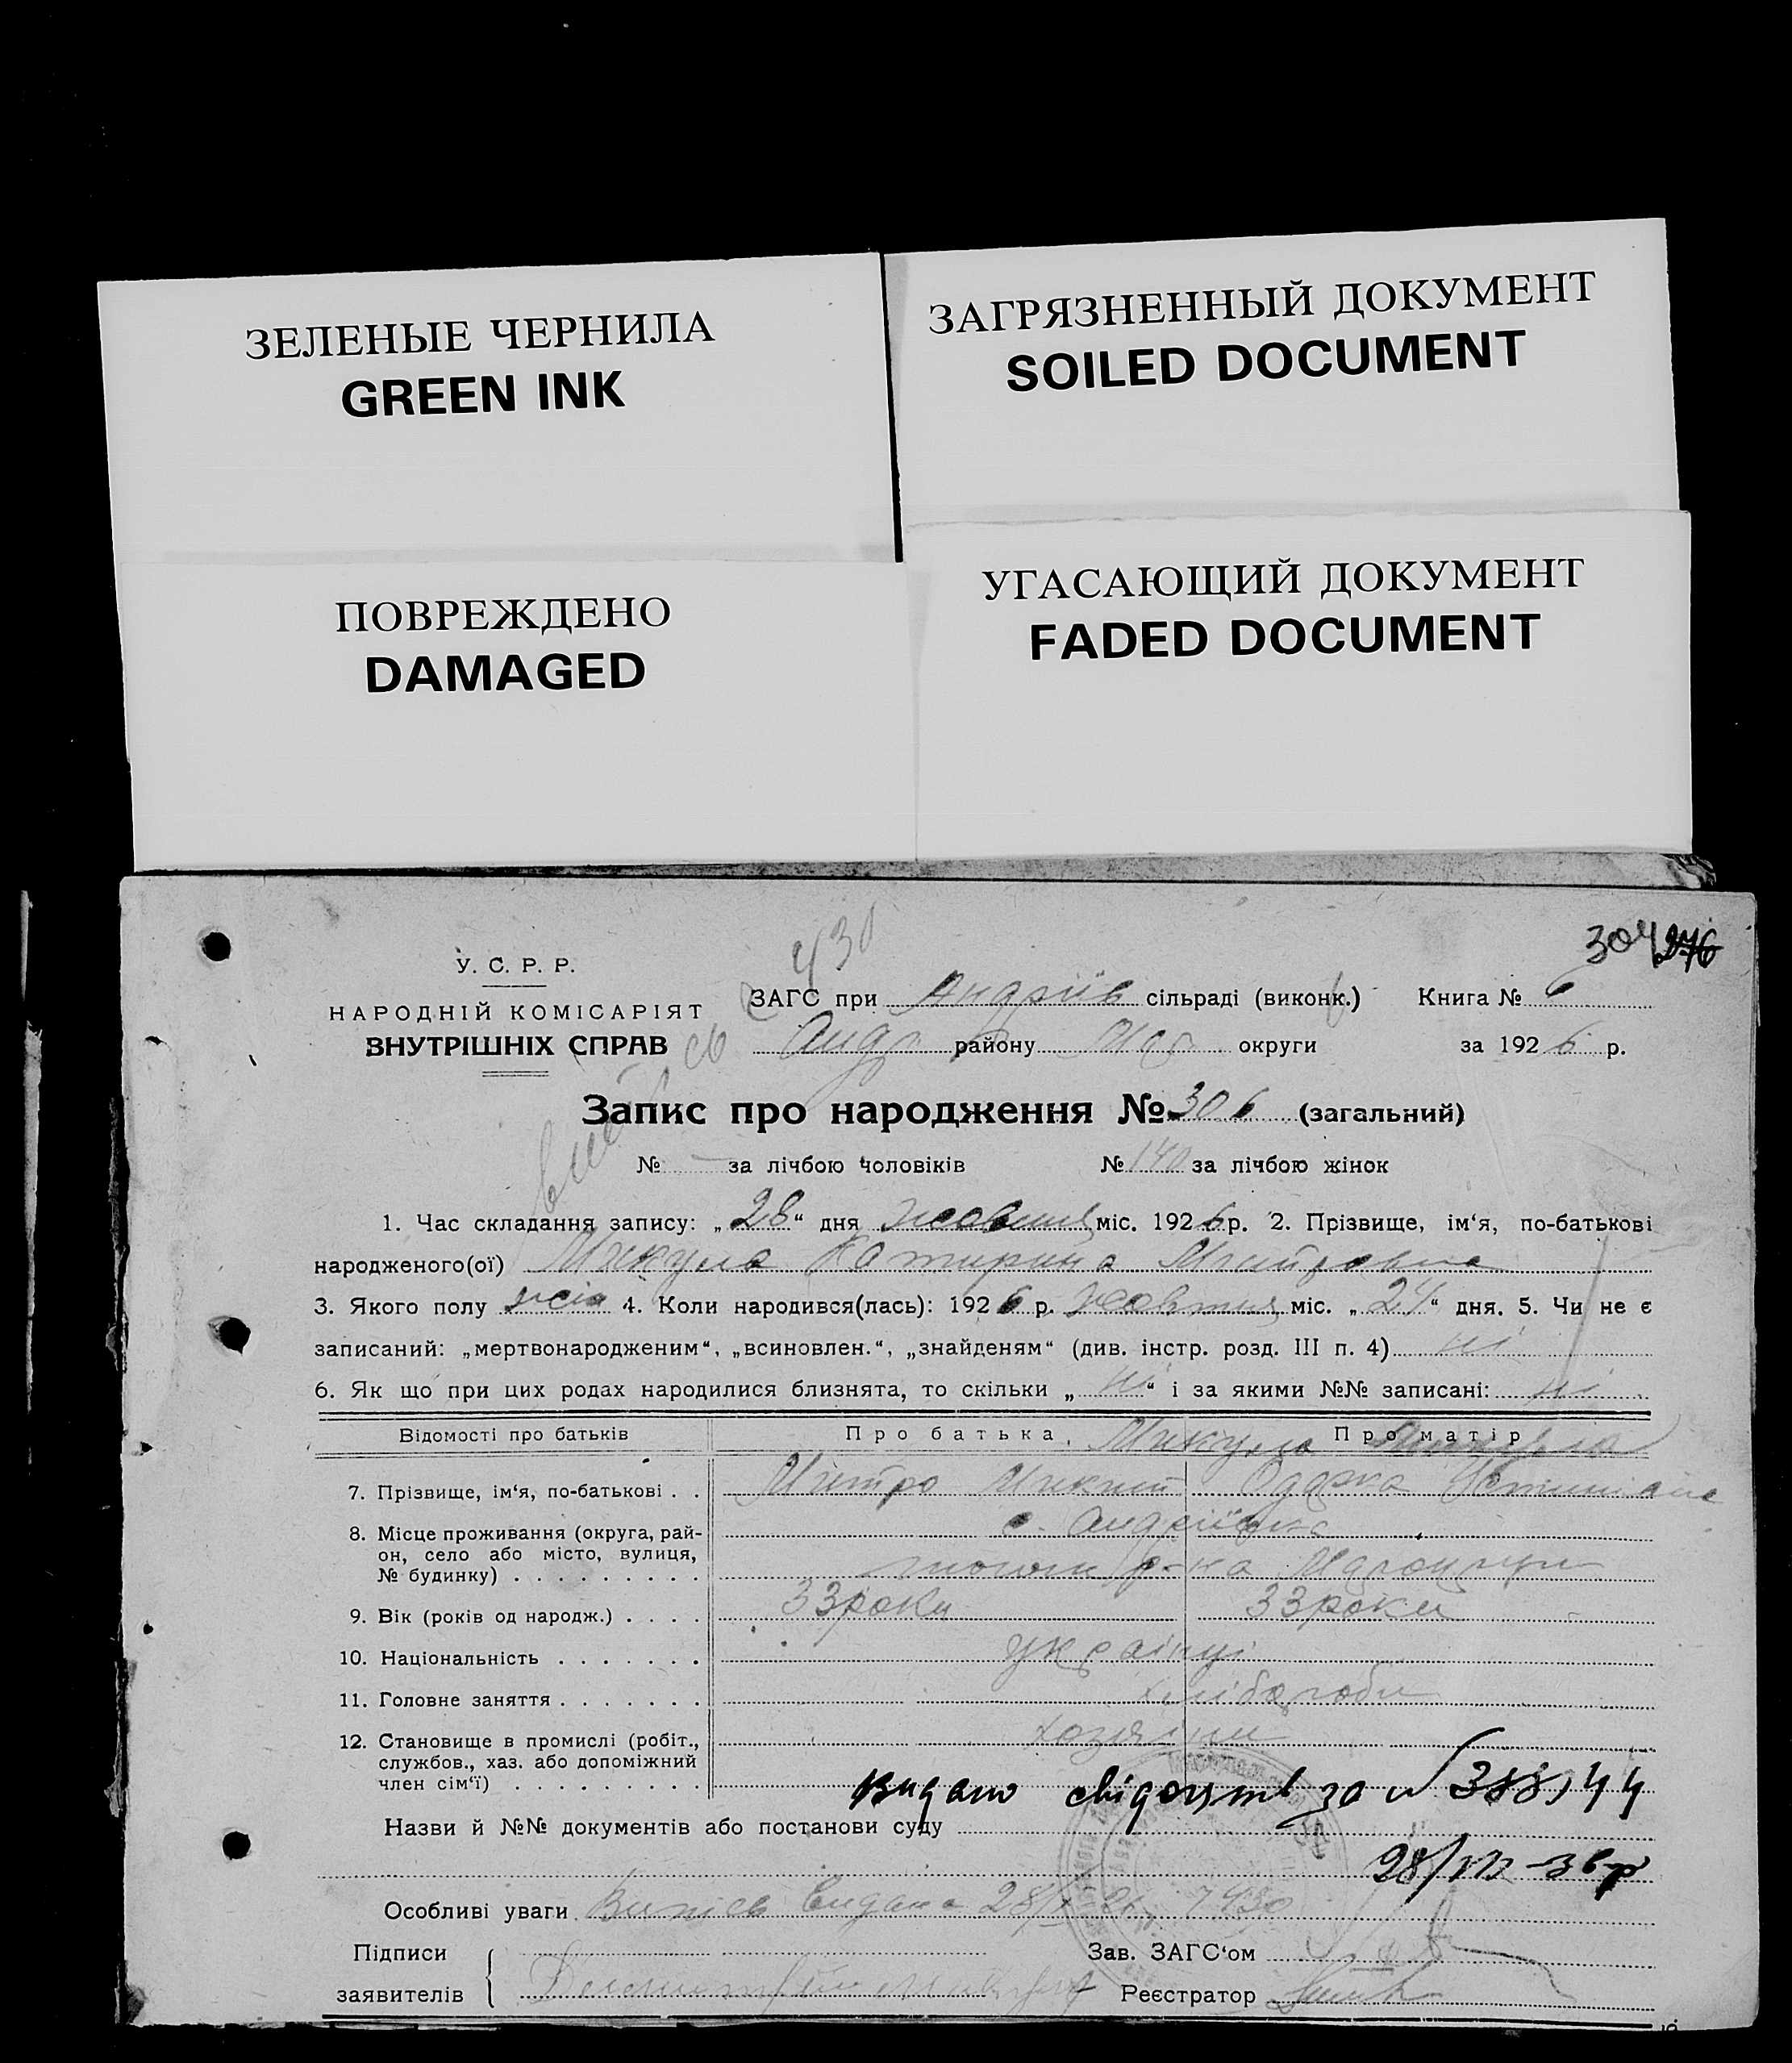 ЗЕЛЕНЫЕ ЧЕРНИЛА
GREEN INK
ЗАГРЯЗНЕННЫЙ ДОКУМЕНТ
SOILED DOCUMENT
ПОВРЕЖДЕНО
DAMAGED
УГАСАЮЩИЙ ДОКУМЕНТ
FADED DOCUMENT
304 276
430
У. С. Р. Р.
НАРОДНІЙ КОМІСАРІЯТ
ВНУТРІШНІХ СПРАВ
ЗАГС при Андріїв сільраді (виконк.) Книга № 6
Андр району округи за 1926 р.
Запис про народження № 306 (загальний)
№ — за лічбою чоловіків № 140 за лічбою жінок
1. Час складання запису: „28“ дня жовтня міс. 1926 р. 2. Прізвище, ім‘я, по-батькові
народженого(ої) Микула Катирина Митровна
3. Якого полу жін 4. Коли народився(лась): 1926 р. жовтня міс. „24“ дня. 5. Чи не є
записаний: „мертвонародженим“, „всиновлен.“, „знайденям“ (див. інстр. розд. III п. 4) ні
6. Як що при цих родах народилися близнята, то скільки „ні“ і за якими №№ записані: ні
Відомості про батьків Про батька Про матір
Микула
7. Прізвище, ім‘я, по-батькові . . Митро Микит Одарка
8. Місце проживання (округа, рай- с. Андріївка
он, село або місто, вулиця,
№ будинку) . . . . . . . . . р-на
9. Вік (років од народж.) . . . . 33 роки 33 роки
10. Національність . . . . . . . українці
11. Головне заняття . . . . . . . хлібороби
12. Становище в промислі (робіт., хозяіни
службов., хаз. або допоміжний
член сім‘ї) . . . . . . . . . Видано свідоцтв за № 388, 44
Назви й №№ документів або постанови суду
28/VII-36р
Особливі уваги Випись видана 28/X 7430
Підписи
заявителів
Зав. ЗАГС‘ом
Реєстратор